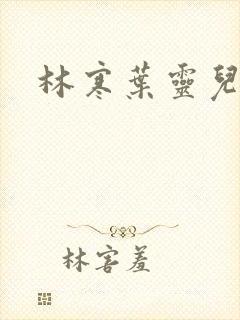 林寒葉靈兒
林害羞